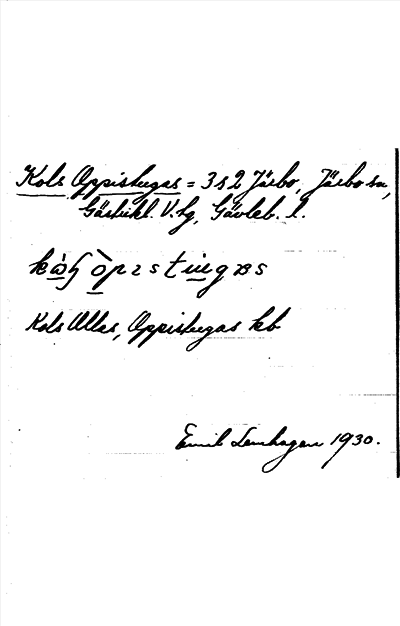 Kols Oppistugas = 3 s 2 Järbo, Järbo sn,
Gästrikl. V. tg, Gävleb. l.
Kols Ollas, Oppistugas kb
Emil Lenhagen 1930.